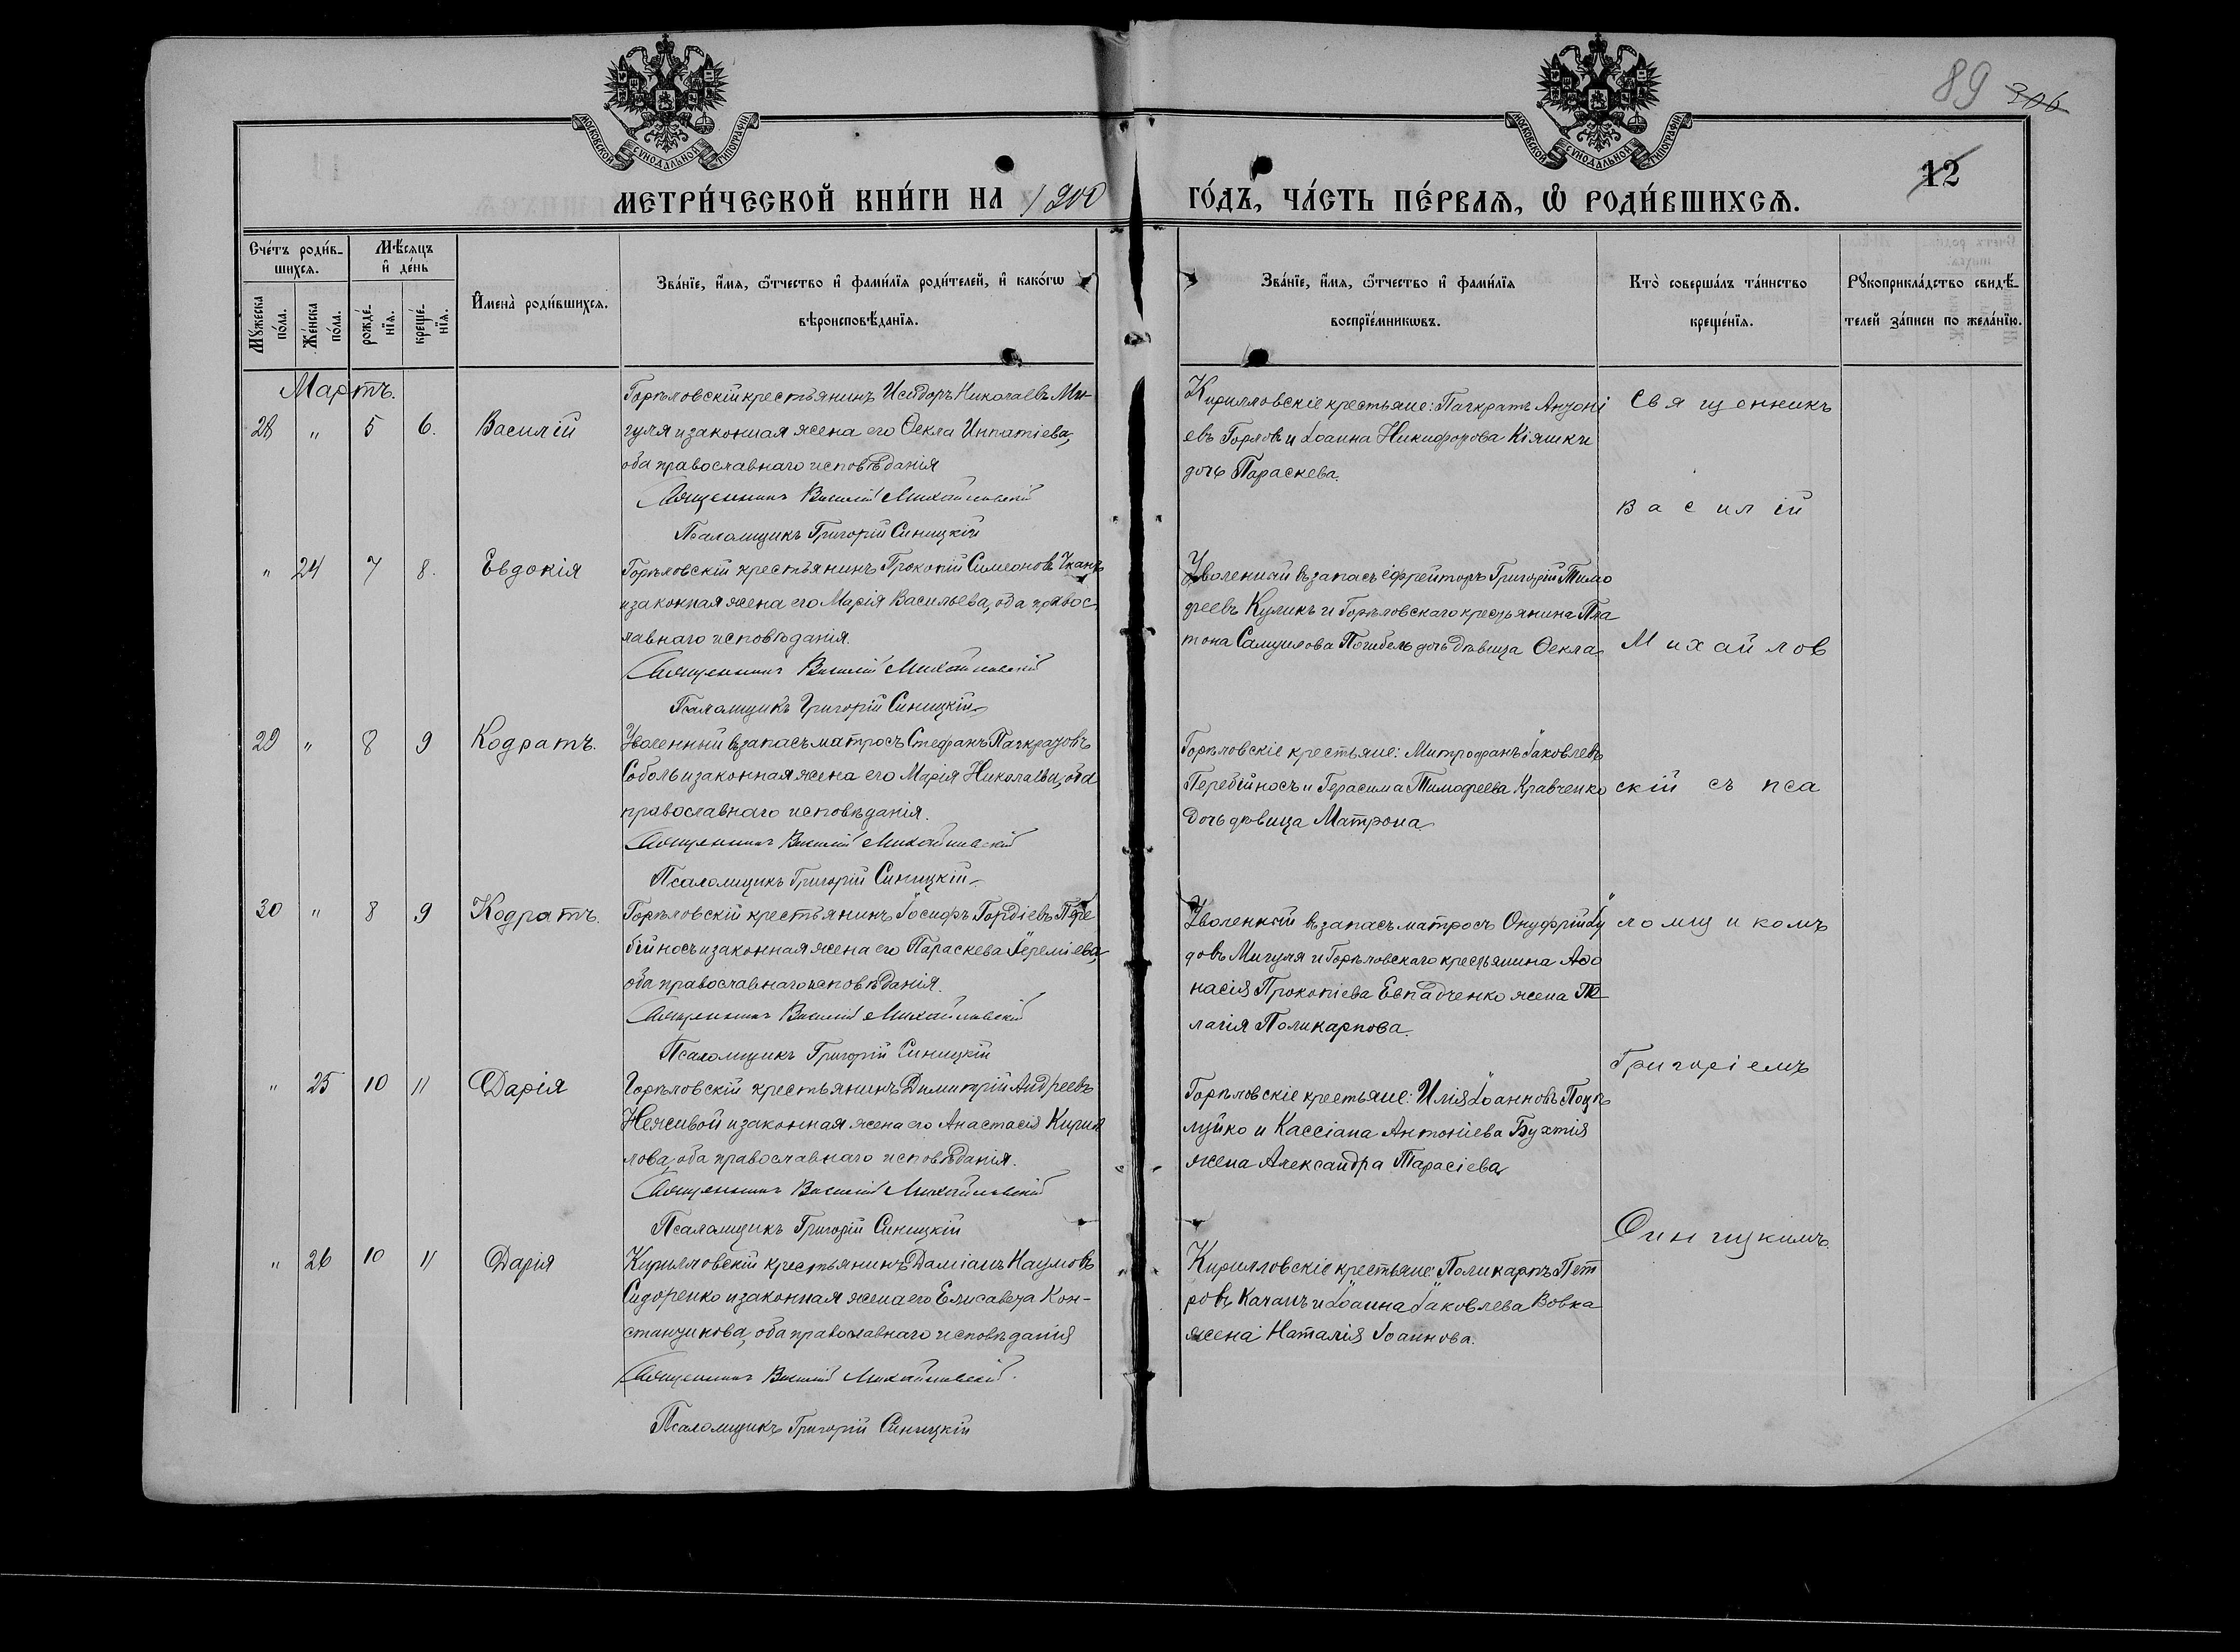 89 306
МОСКОВСКОЙ СѴНОДАЛЬНОЙ ТИПОГРАФІИ
МОСКОВСКОЙ СѴНОДАЛЬНОЙ ТИПОГРАФІИ
12
МЕТРИ́ЧЕСКОЙ КНИ́ГИ НА 1900
ГО́ДЪ, ЧА́СТЬ ПЕ́РВАЯ, Ѿ РОДИ́ВШИХСѦ.
Сче́тъ роди́в-
шихсѧ.
Мѣ́сѧцъ
и҆ де́нь
Мꙋ́жеска
по́ла.
Же́нска
по́ла.
рожде́-
нїѧ.
креще́-
нїѧ.
И҆мена̀ роди́вшихсѧ.
Зва́нїе, и҆́мѧ, ѻ҆́тчество и҆ фами́лїѧ роди́телей, и҆ како́гѡ
вѣроисповѣ́данїѧ.
Зва́нїе, и҆́мѧ, ѻ҆́тчество и҆ фами́лїѧ
воспрїе́мникѡвъ.
Кто̀ соверша́лъ та́инство
креще́нїѧ.
Рꙋкоприкла́дство свидѣ́-
телей за́писи по жела́нїю.
Мартъ.
28 " 5 6. Василій
Горѣловскій крестьянинъ Исидоръ Николаевъ Ми-
гуля и законная жена его Ѳекла Ипатіева,
оба православнаго исповѣданія
Священникъ Василій Михайловскій
Псаломщикъ Григорій Синицкій
Кирилловскіе крестьяне: Панкратъ Антоні
евъ Горловъ и Іоанна Никифорова Кіяшки
дочь Параскева.
" 24 7 8. Евдокія
Горѣловскій крестьянинъ Прокопій Симеоновъ
и законная жена его Марія Васильева, оба правос-
лавнаго исповѣданія.
Священникъ Василій Михайловскій
Псаломщикъ Григорій Синицкій
Уволенный въ запасъ ефрейторъ Григорій Тимо
феевъ Куликъ и Горѣловскаго крестьянина Пла
тона Самуилова Погибель дочь дѣвица Ѳекла
29 " 8 9 Кодратъ.
Уволенный въ запасъ матросъ Стефанъ Панкратовъ
Соболь и законная жена его Марія Николаева, оба
православнаго исповѣданія.
Священникъ Василій Михайловскій
Псаломщикъ Григорій Синицкій
Горѣловскіе крестьяне: Митрофанъ Іаковлевъ
Перебійносъ и Герасима Тимофеева Кравченко
дочь дѣвица Матрона
30 " 8 9 Кодратъ.
Горѣловскій крестьянинъ Іосифъ Гордіевъ Пере
бійносъ и законная жена его Параскева Іереміева,
оба православнаго исповѣданія.
Священникъ Василій Михайловскій
Псаломщикъ Григорій Синицкій
Уволенный въ запасъ матросъ Онуфрій Іу
довъ Мигуля и Горѣловскаго крестьянина Аѳа
насія Прокопіева Евпадченко жена Пе
лагія Поликарпова.
" 25 10 11 Дарія
Горѣловскій крестьянинъ Димитрій Андреевъ
Неживой и законная жена его Анастасія Кирил
лова, оба православнаго исповѣданія.
Священникъ Василій Михайловскій
Псаломщикъ Григорій Синицкій
Горѣловскіе крестьяне: Илія Іоанновъ Поцѣ
луйко и Кассіана Антоніева Бухтія
жена Александра Тарасіева
" 26 10 11 Дарія
Кирилловскій крестьянинъ Даміанъ Наумовъ
Сидоренко и законная жена его Елисавета Кон-
стантинова, оба православнаго исповѣданія
Священникъ Василій Михайловскій.
Псаломщикъ Григорій Синицкій
Кирилловскіе крестьяне: Поликарпъ Пет
ровъ Качанъ и Іоанна Іаковлева Вовка
жена Наталія Іоаннова.
Священникъ
Василій
Михайлов
скій съ пса
ломщикомъ
Григоріемъ
Синицкимъ.